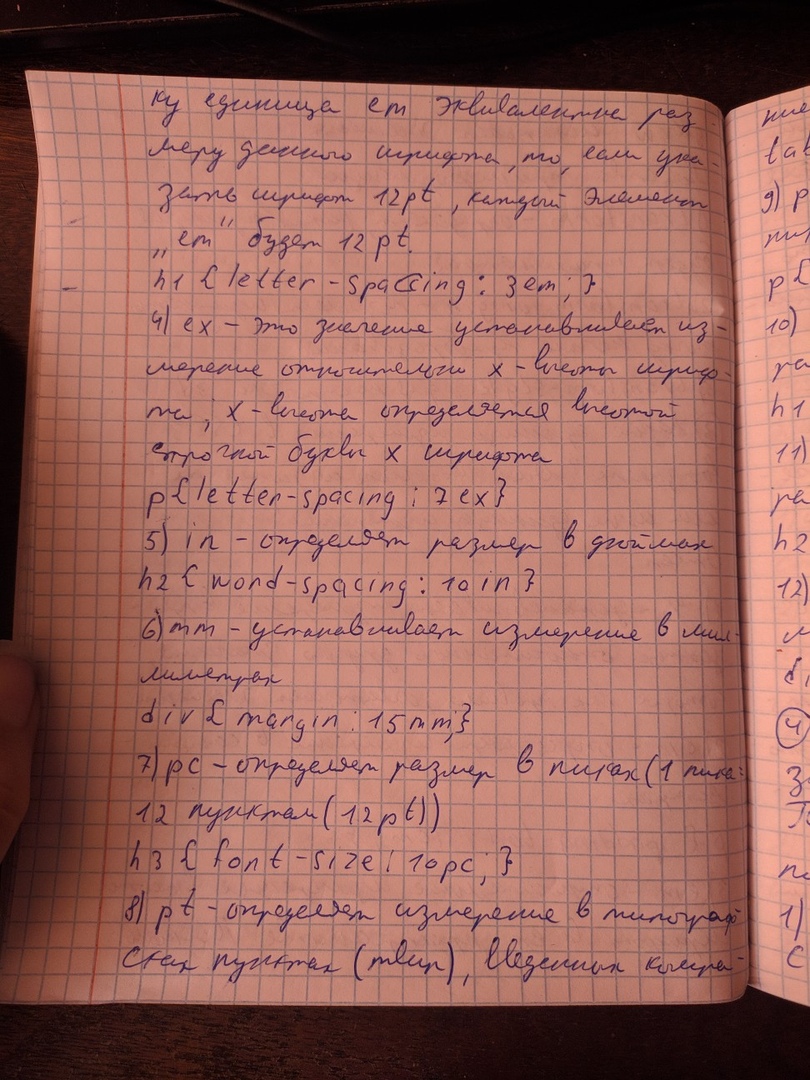 ку единица em эквивалентна раз
меру данного шрифта, то, если ука-
зать шрифт 12pt, каждый элемент
„em" будет 12 pt.
h1 { letter-spacing: 3em; }
4) ex – это значение устанавливает из-
мерение относительно x-высоты шриф-
та; x-высота определяется высотой
строчной буквы x шрифта
p{ letter-spacing: 7ex}
5) in – определяет размер в дюймах
h2 { word-spacing: 10in }
6) mm – устанавливает измерение в мил-
лиметрах
div{ margin: 15mm;}
7) pc – определяет размер в пиках (1 пика =
12 пунктам (12pt))
h3 { font-size: 10pc; }
8) pt – определяет измерение в типограф
ских пунктах ( ), введенных
ние
tab
9) p
p{
10)
ра
h1
11)
ра
h2
12)
м
di
4
1)
с